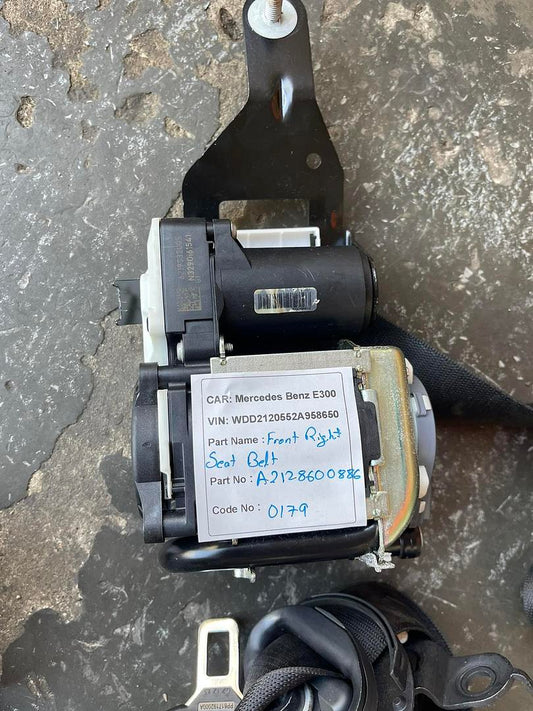 N329061541
CAR: Mercedes Benz E300
VIN: WDD2120552A958650
Part Name : Front Right
Seat Belt
Part No : A2128600886
Code No : 0179